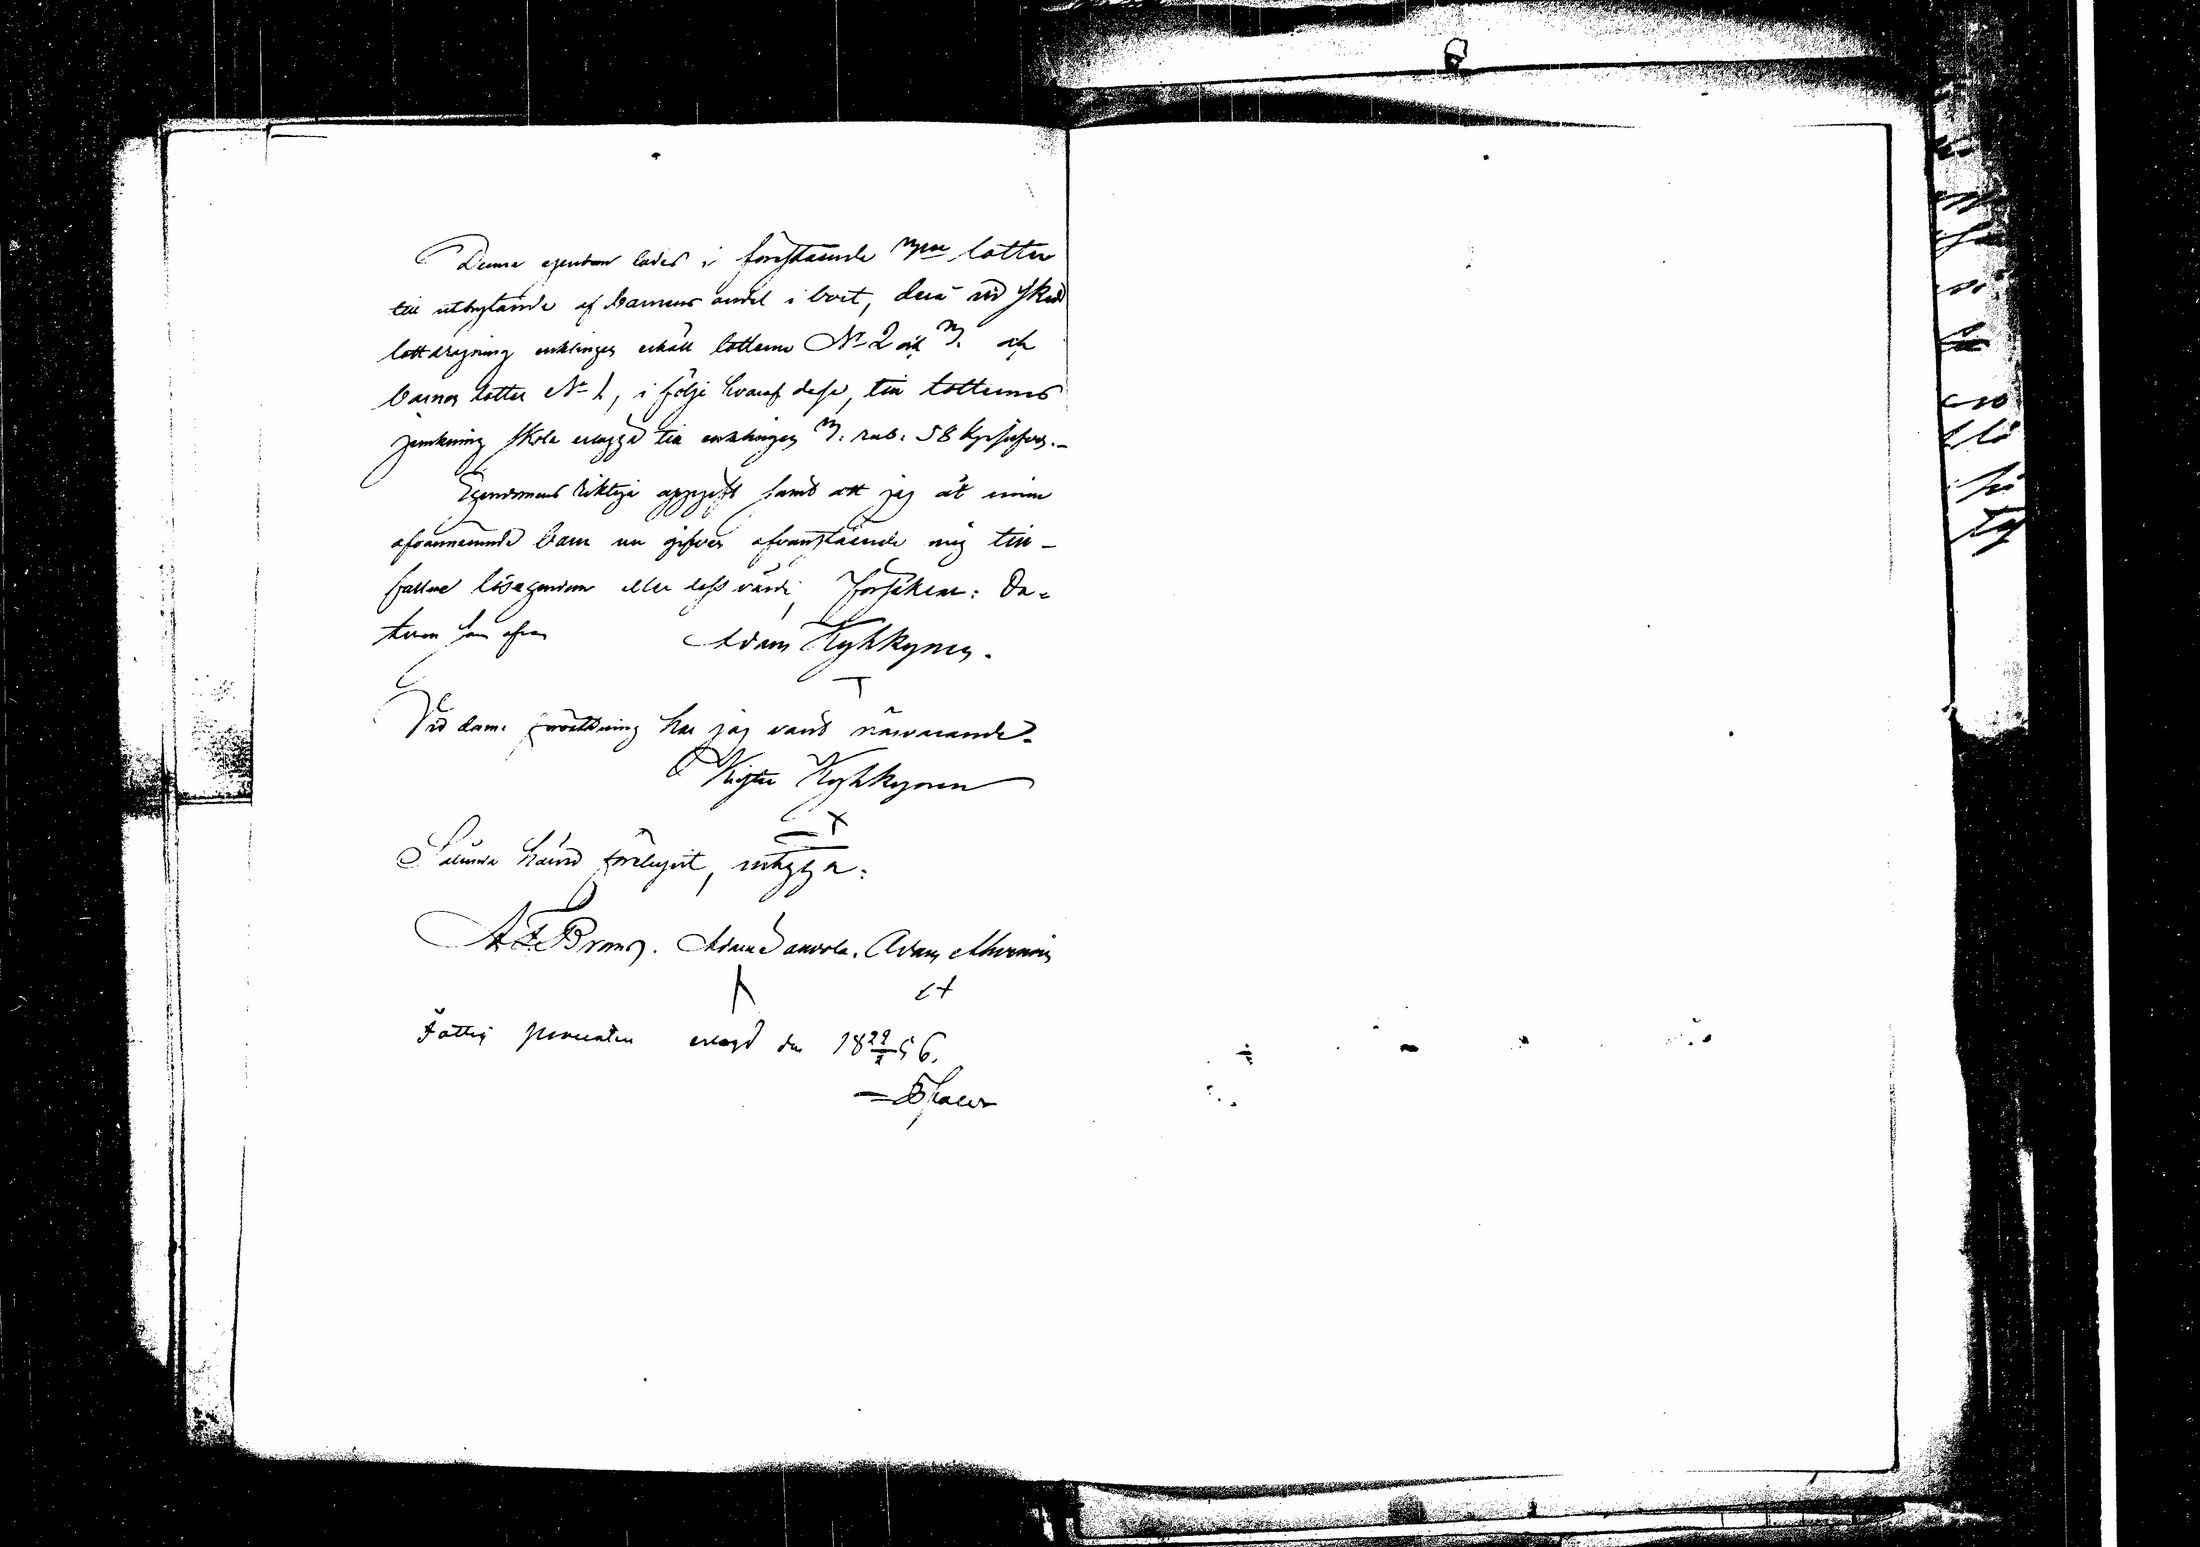 Denna egendom lades i förestående 3ne lotter
till utbytande af barnens andel i boet, deraf vid skedd
lottdragning enklingen erhöll lotterne No 2 och 3. och
barnen lotten No 1, i följe hvaraf desse, till lotternes
jemkning skola erlägga till enklingen 3. rub. 58 kop silfver.
Egendomens riktiga uppgift samt att jag åt mina
ofvannämnde barn nu gifver ofvanstående mig till-
fallne lösegendom eller dess värde, försäkrar: Da-
tum som ofvan Adam Kyhkynen.
Vid denna förrättning har jag varit närvarande.
Kyhkynen
Sålunda hafva förelupit, intyga:
Adam Adam
Fattig procenten erlagd den 18 29/2 56.